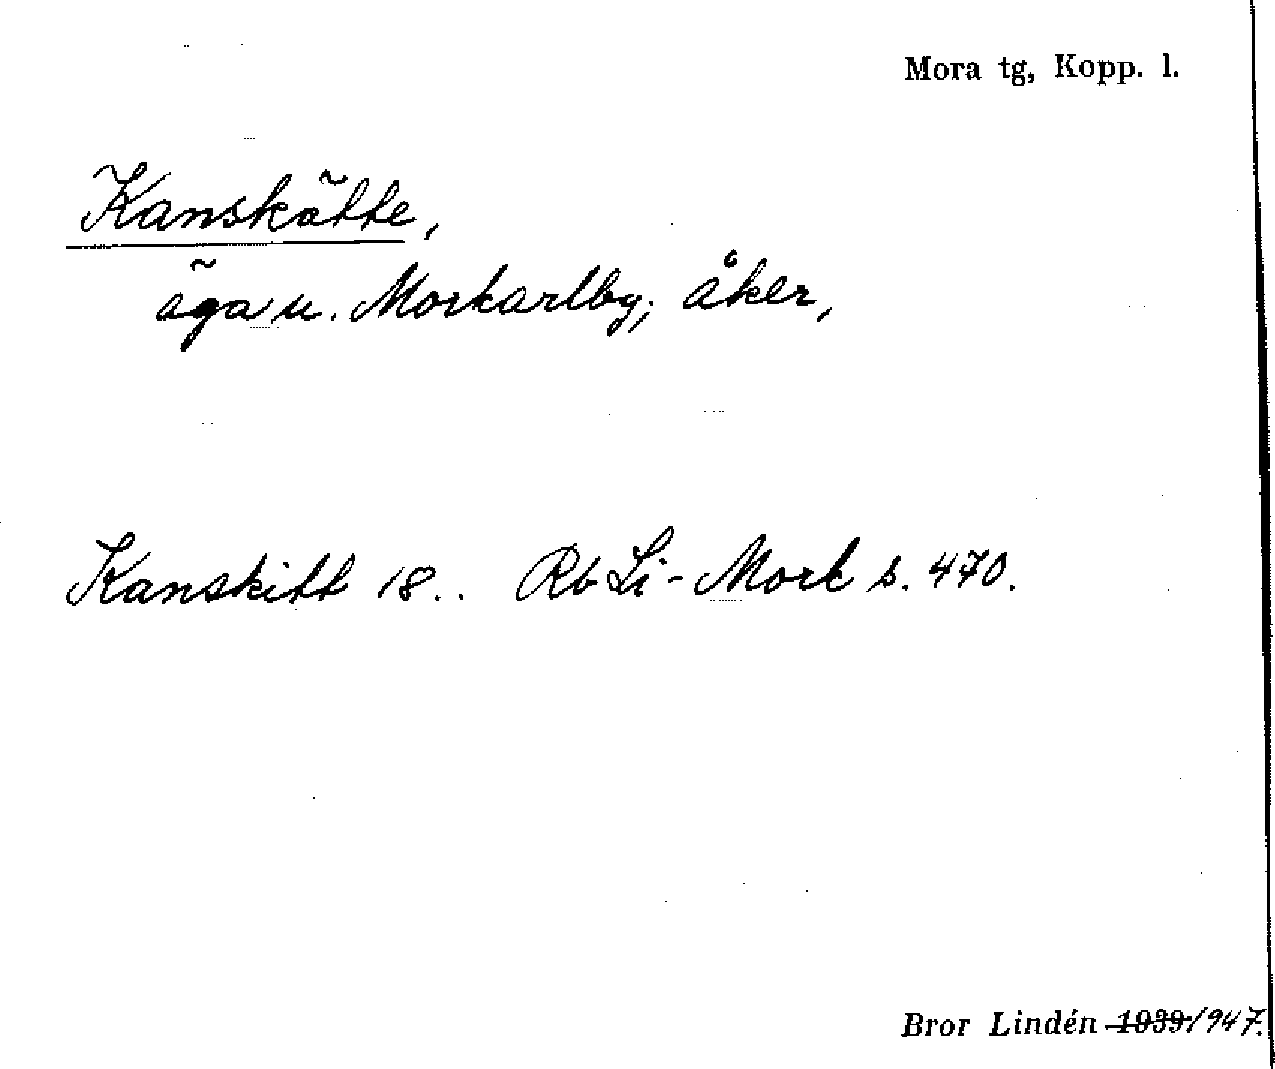 Mora tg, Kopp. l.
Kanskãtte,
ãga u. Morkarlby; åker,
Kanskitt 18.. Rb Li-Mork s. 470.
Bror Lindén ~~1939~~ 1947.